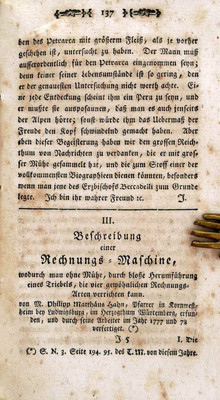 137
ben des Petrarca mit größerm Fleiß, als je vorher
geschehen ist, untersucht zu haben. Der Mann muß
außerordentlich für den Petrarca eingenommen seyn;
denn keiner seiner Lebensumstände ist so gering, den
er der genauesten Untersuchung nicht werth achte. Ei
ne jede Entdeckung scheint ihm ein Peru zu seyn, und
er mußte sie ausposaunen, daß man es auch jenseits
der Alpen hörte; sonst würde ihm das Uebermaß der
Freude den Kopf schwindelnd gemacht haben. Aber
eben dieser Begeisterung haben wir den großen Reich
thum von Nachrichten zu verdanken, die er mit gros
ser Mühe gesammelt hat, und die zum Stoff einer der
vollkommensten Biographieen dienen könnten, besonders
wenn man jene des Erzbischofs Beccadelli zum Grunde
legte. Ich bin ihr wahrer Freund ꝛc. J.
III.
Beschreibung
einer
Rechnungs-Maschine,
wodurch man ohne Mühe, durch blosse Herumführung
eines Triebels, die vier gewöhnlichen Rechnungs-
Arten verrichten kann.
von M. Philipp Matthäus Hahn, Pfarrer in Kornwest-
heim bey Ludwigsburg, im Herzogthum Würtemberg, erfun-
den, und durch seine Arbeiter im Jahr 1777 und 78
verfertiget. (*)
J 5 I. Die
(*) S. N. 3. Seite 194. 95. des T. M. von diesem Jahre.